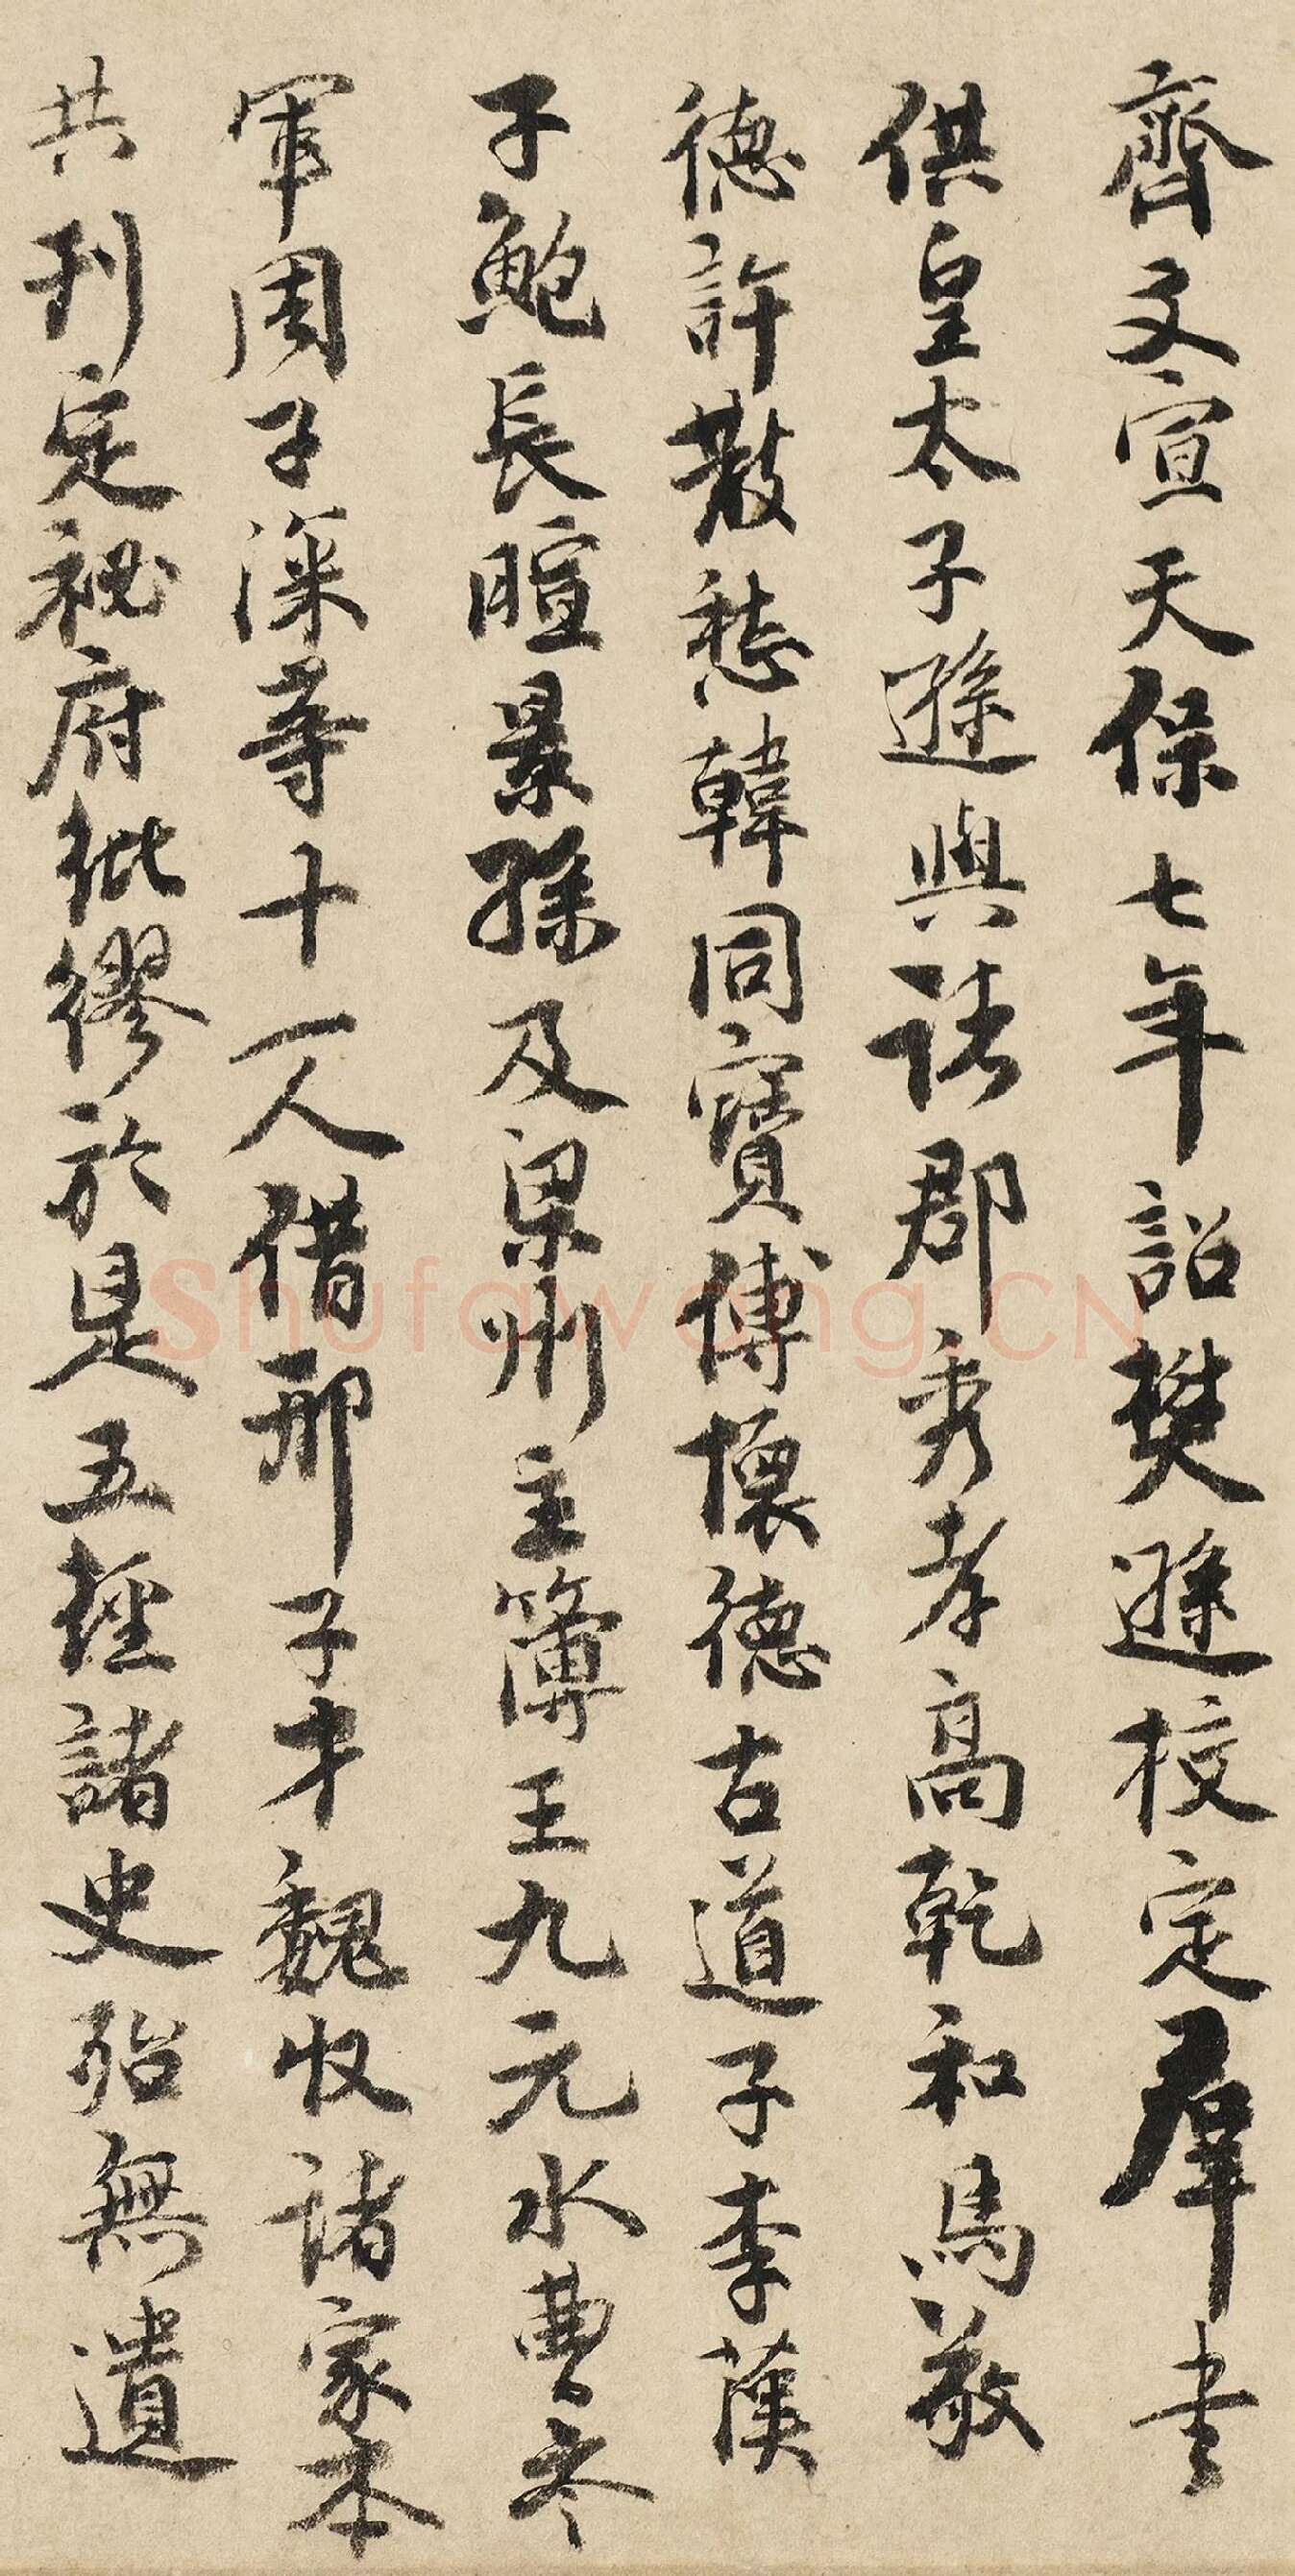 齊文宣天保七年詔樊遜校定羣書
供皇太子遜與諸郡秀孝高乾和馬敬
德許散愁韓同寶傅懷德古道子李漢
子鮑長暄景孫及梁州主簿王九元水曹叅
軍周子深等十一人借邢子才魏收諸家本
共刊定祕府紕繆於是五經諸史殆無遺
Shufawang.CN